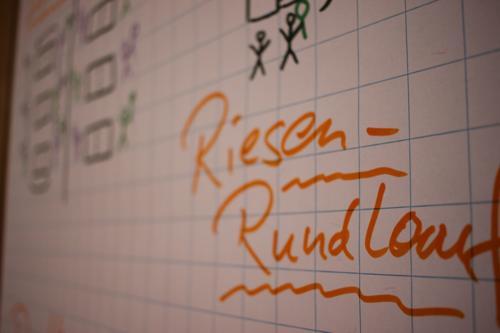 Riesen-
Rundlauf